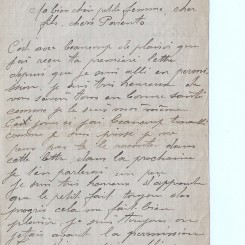 bien chère petite femme, cher
fils, chers Parents
C'est avec beaucoup de plaisir que
j'ai reçu ta première lettre
depuis que je suis allé en permi
ssion, je suis très heureux de
vous savoir tous en bonne santé
comme je le suis moi même
ces jours ci j'ai beaucoup travaillé
comme je suis je ne
peux pas te le raconter dans
cette lettre, dans la prochaine
je t'en parlerai un peu
Je suis très heureux d'apprendre
que le petit fait toujours des
progrès cela me fait bien
plaisir, je suis toujours où
j'étais avant la permission